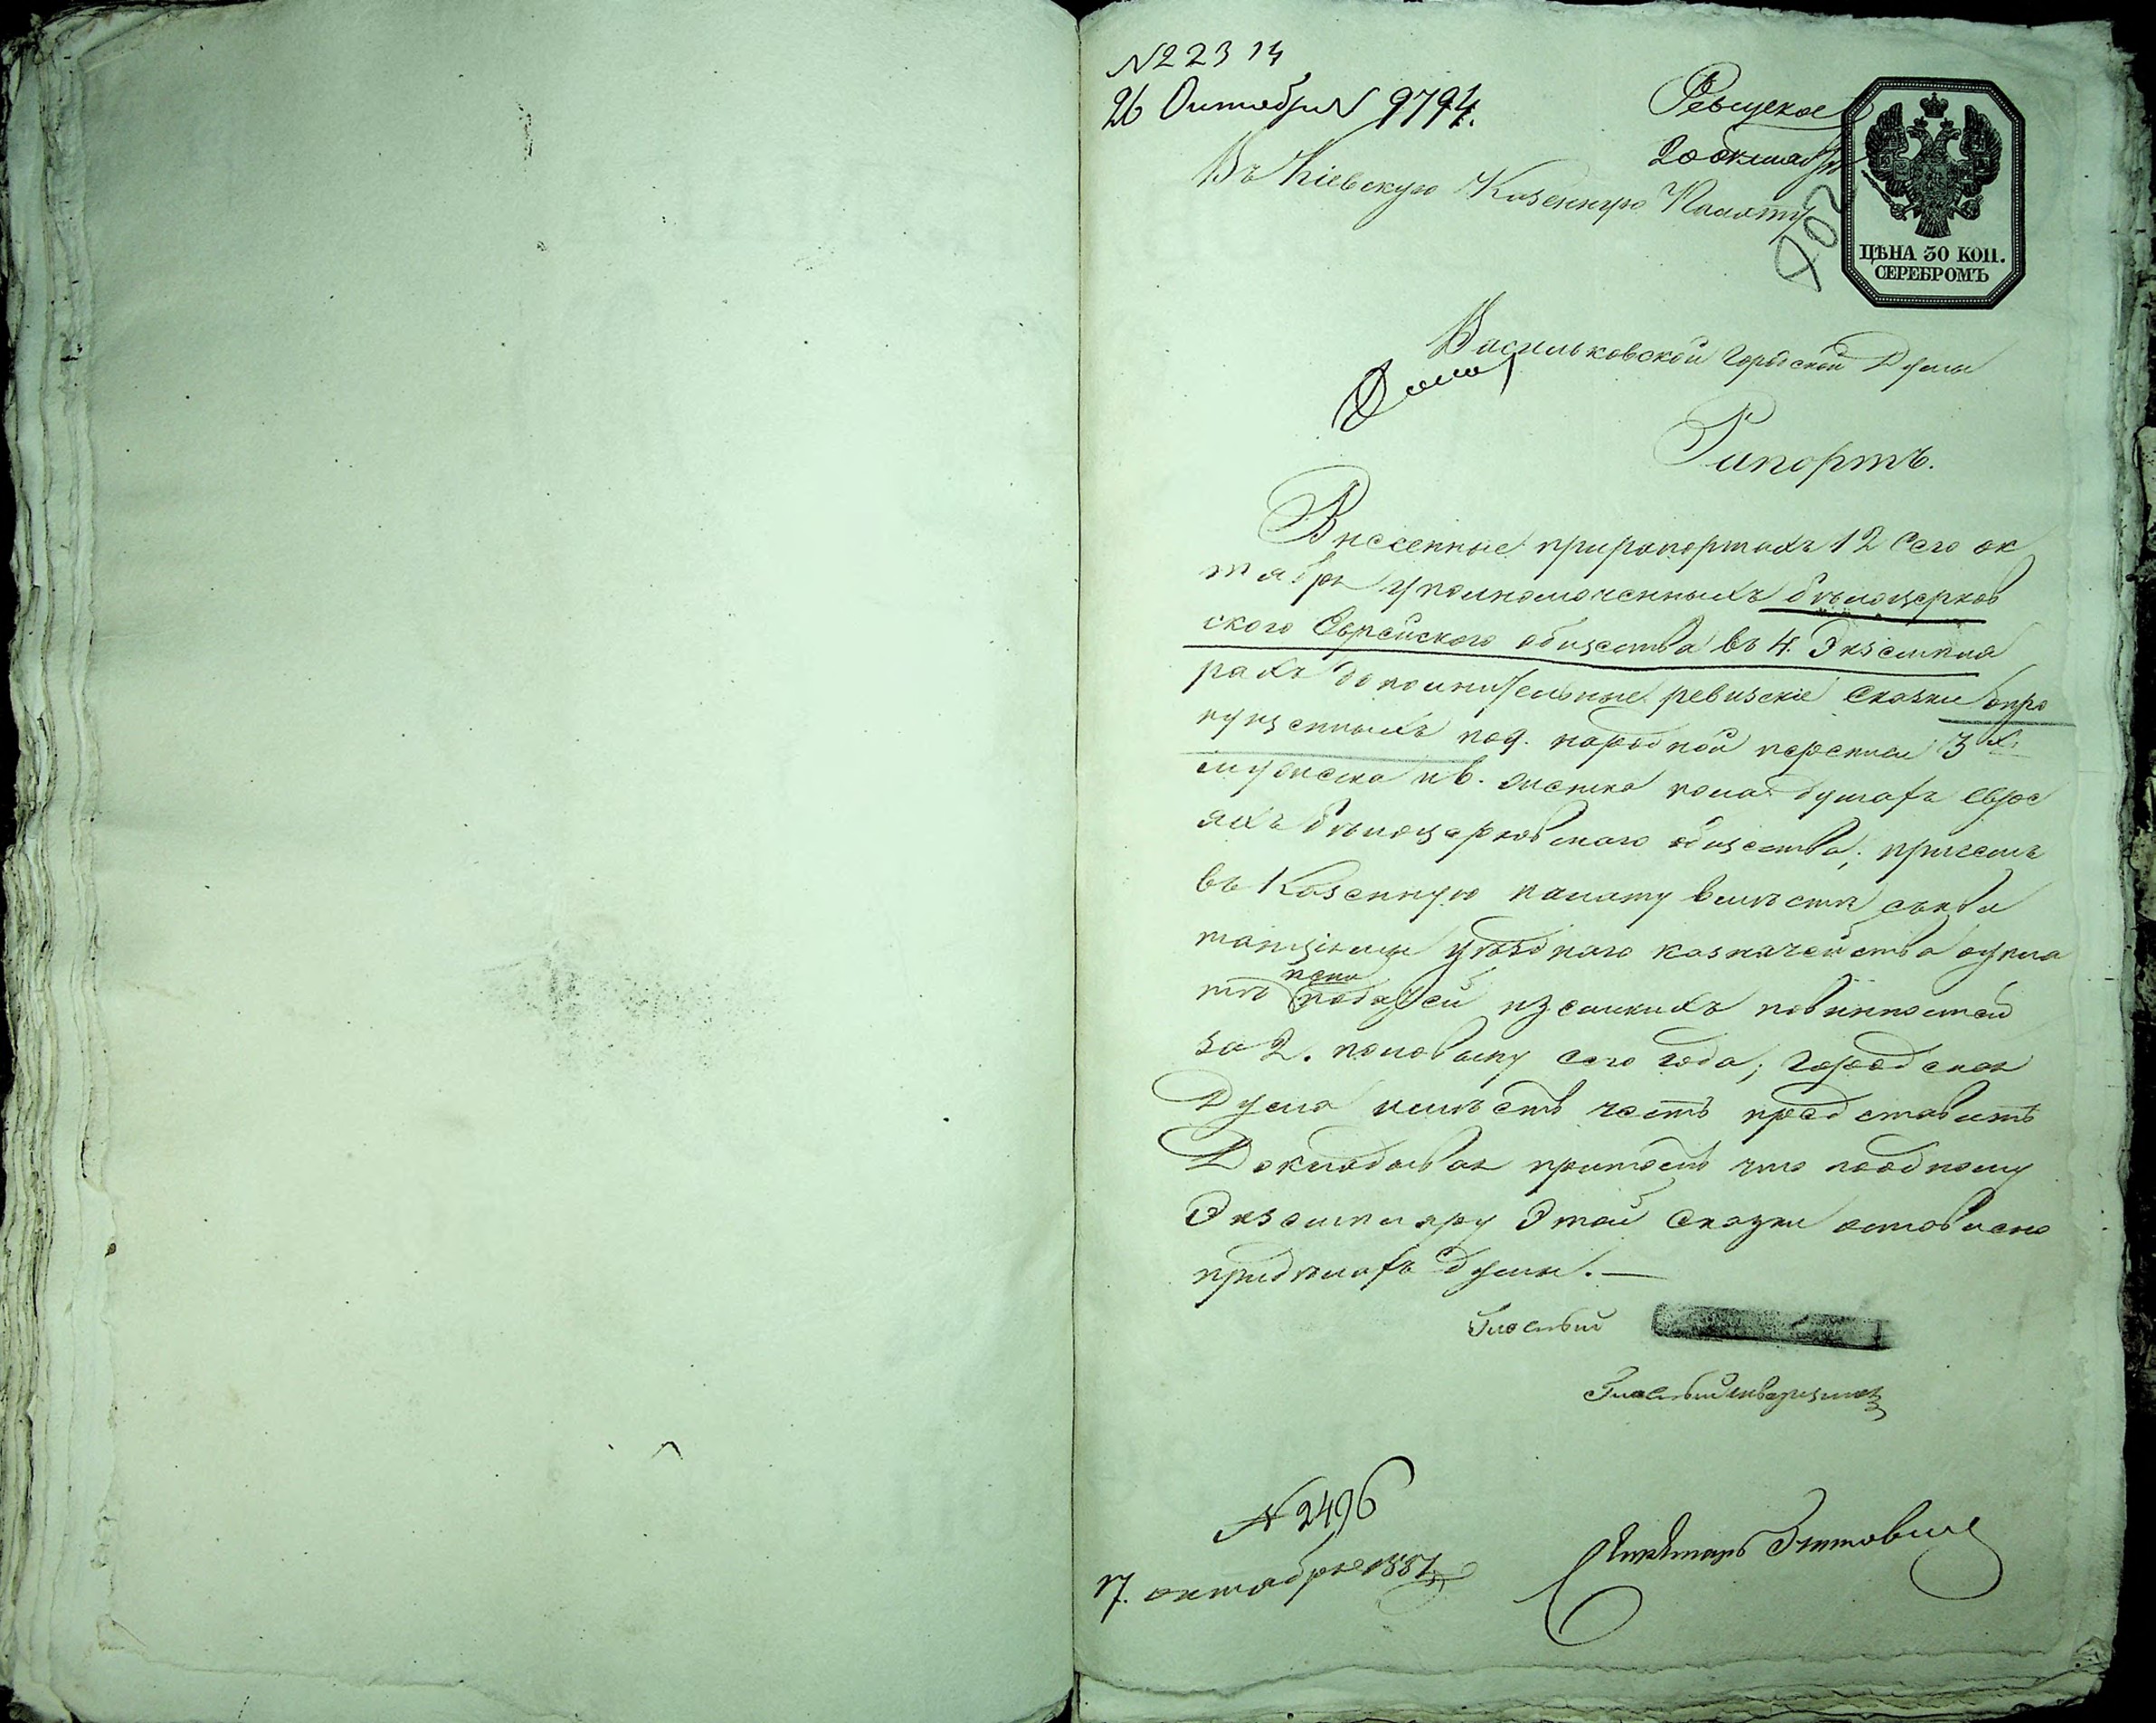 № 22314
26 Октября 9794.
Ревизское
20 октября
Въ Кіевскую Казенную Палату
402
ЦѢНА 30 КОП.
СЕРЕБРОМЪ
Васильковской Городской Думы
Рапортъ.
Внесенные при рапортахъ 12 сего ок
тября уполномоченныхъ бѣлоцерков
ского Еврейского общества въ 4. Экземпля
рахъ дополнительные ревизскіе сказки о про
пущенныхъ по 9. народной переписи 3хъ
мужеска и 6. женска пола душахъ Евре
яхъ бѣлоцерковскаго общества; причемъ
въ Казенную палату вмѣстѣ съ кви
танціями уѣзднаго казначейства о упла
тѣ податей и земскихъ повинностей
за 2. половину сего года; Городская
Дума имѣетъ честь представить
Докладывая притомъ что по одному
Экземпляру этой Сказки оставлено
при дѣлахъ думы. —
Гласный
Гласный
№ 2496
17. октября 1851